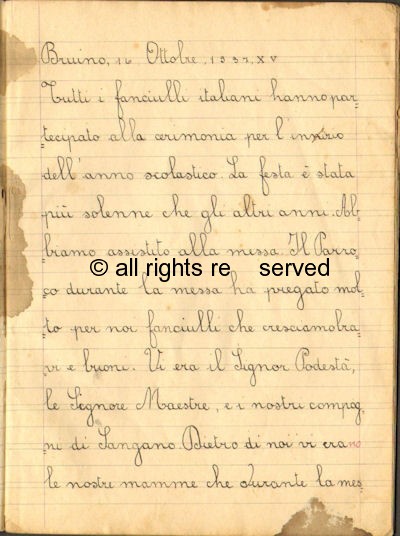 Bruino, 16 Ottobre, 1937, XV
Tutti i fanciulli italiani hanno par=
tecipato alla cerimonia per l'inizio
dell'anno scolastico. La festa è stata
più solenne che gli altri anni. Ab=
biamo assistito alla messa. Il Parro=
© all rights re served
co durante la messa ha pregato mol=
to per noi fanciulli che cresciamo bra=
vi e buoni. Vi era il Signor Podestà,
le Signore Maestre, e i nostri compag=
ni di Sangano. Dietro di noi vi erano
le nostre mamme che durante la mes